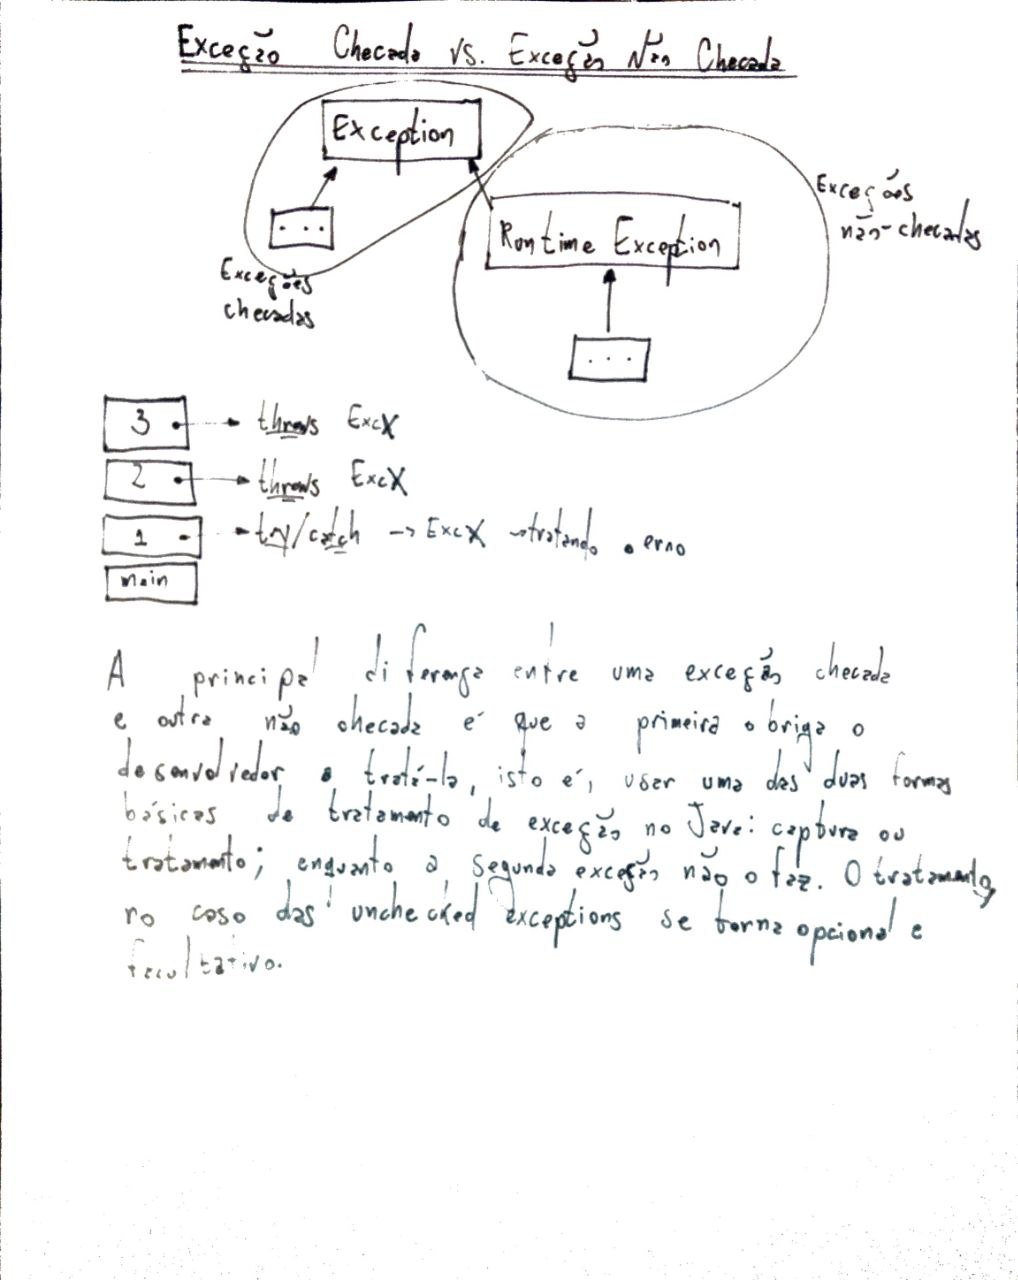 Exceção Checada vs. Exceção Não Checada
Exception
. . .
Exceções
checadas
Runtime Exception
. . .
Exceções
não-checadas
3 → throws ExcX
2 → throws ExcX
1 → try/catch → ExcX → tratando o erro
main
A principal diferença entre uma exceção checada
e outra não checada é que a primeira obriga o
desenvolvedor a tratá-la, isto é, usar uma das duas formas
básicas de tratamento de exceção no Java: captura ou
tratamento; enquanto a segunda exceção não o faz. O tratamento,
no caso das unchecked exceptions se torna opcional e
facultativo.